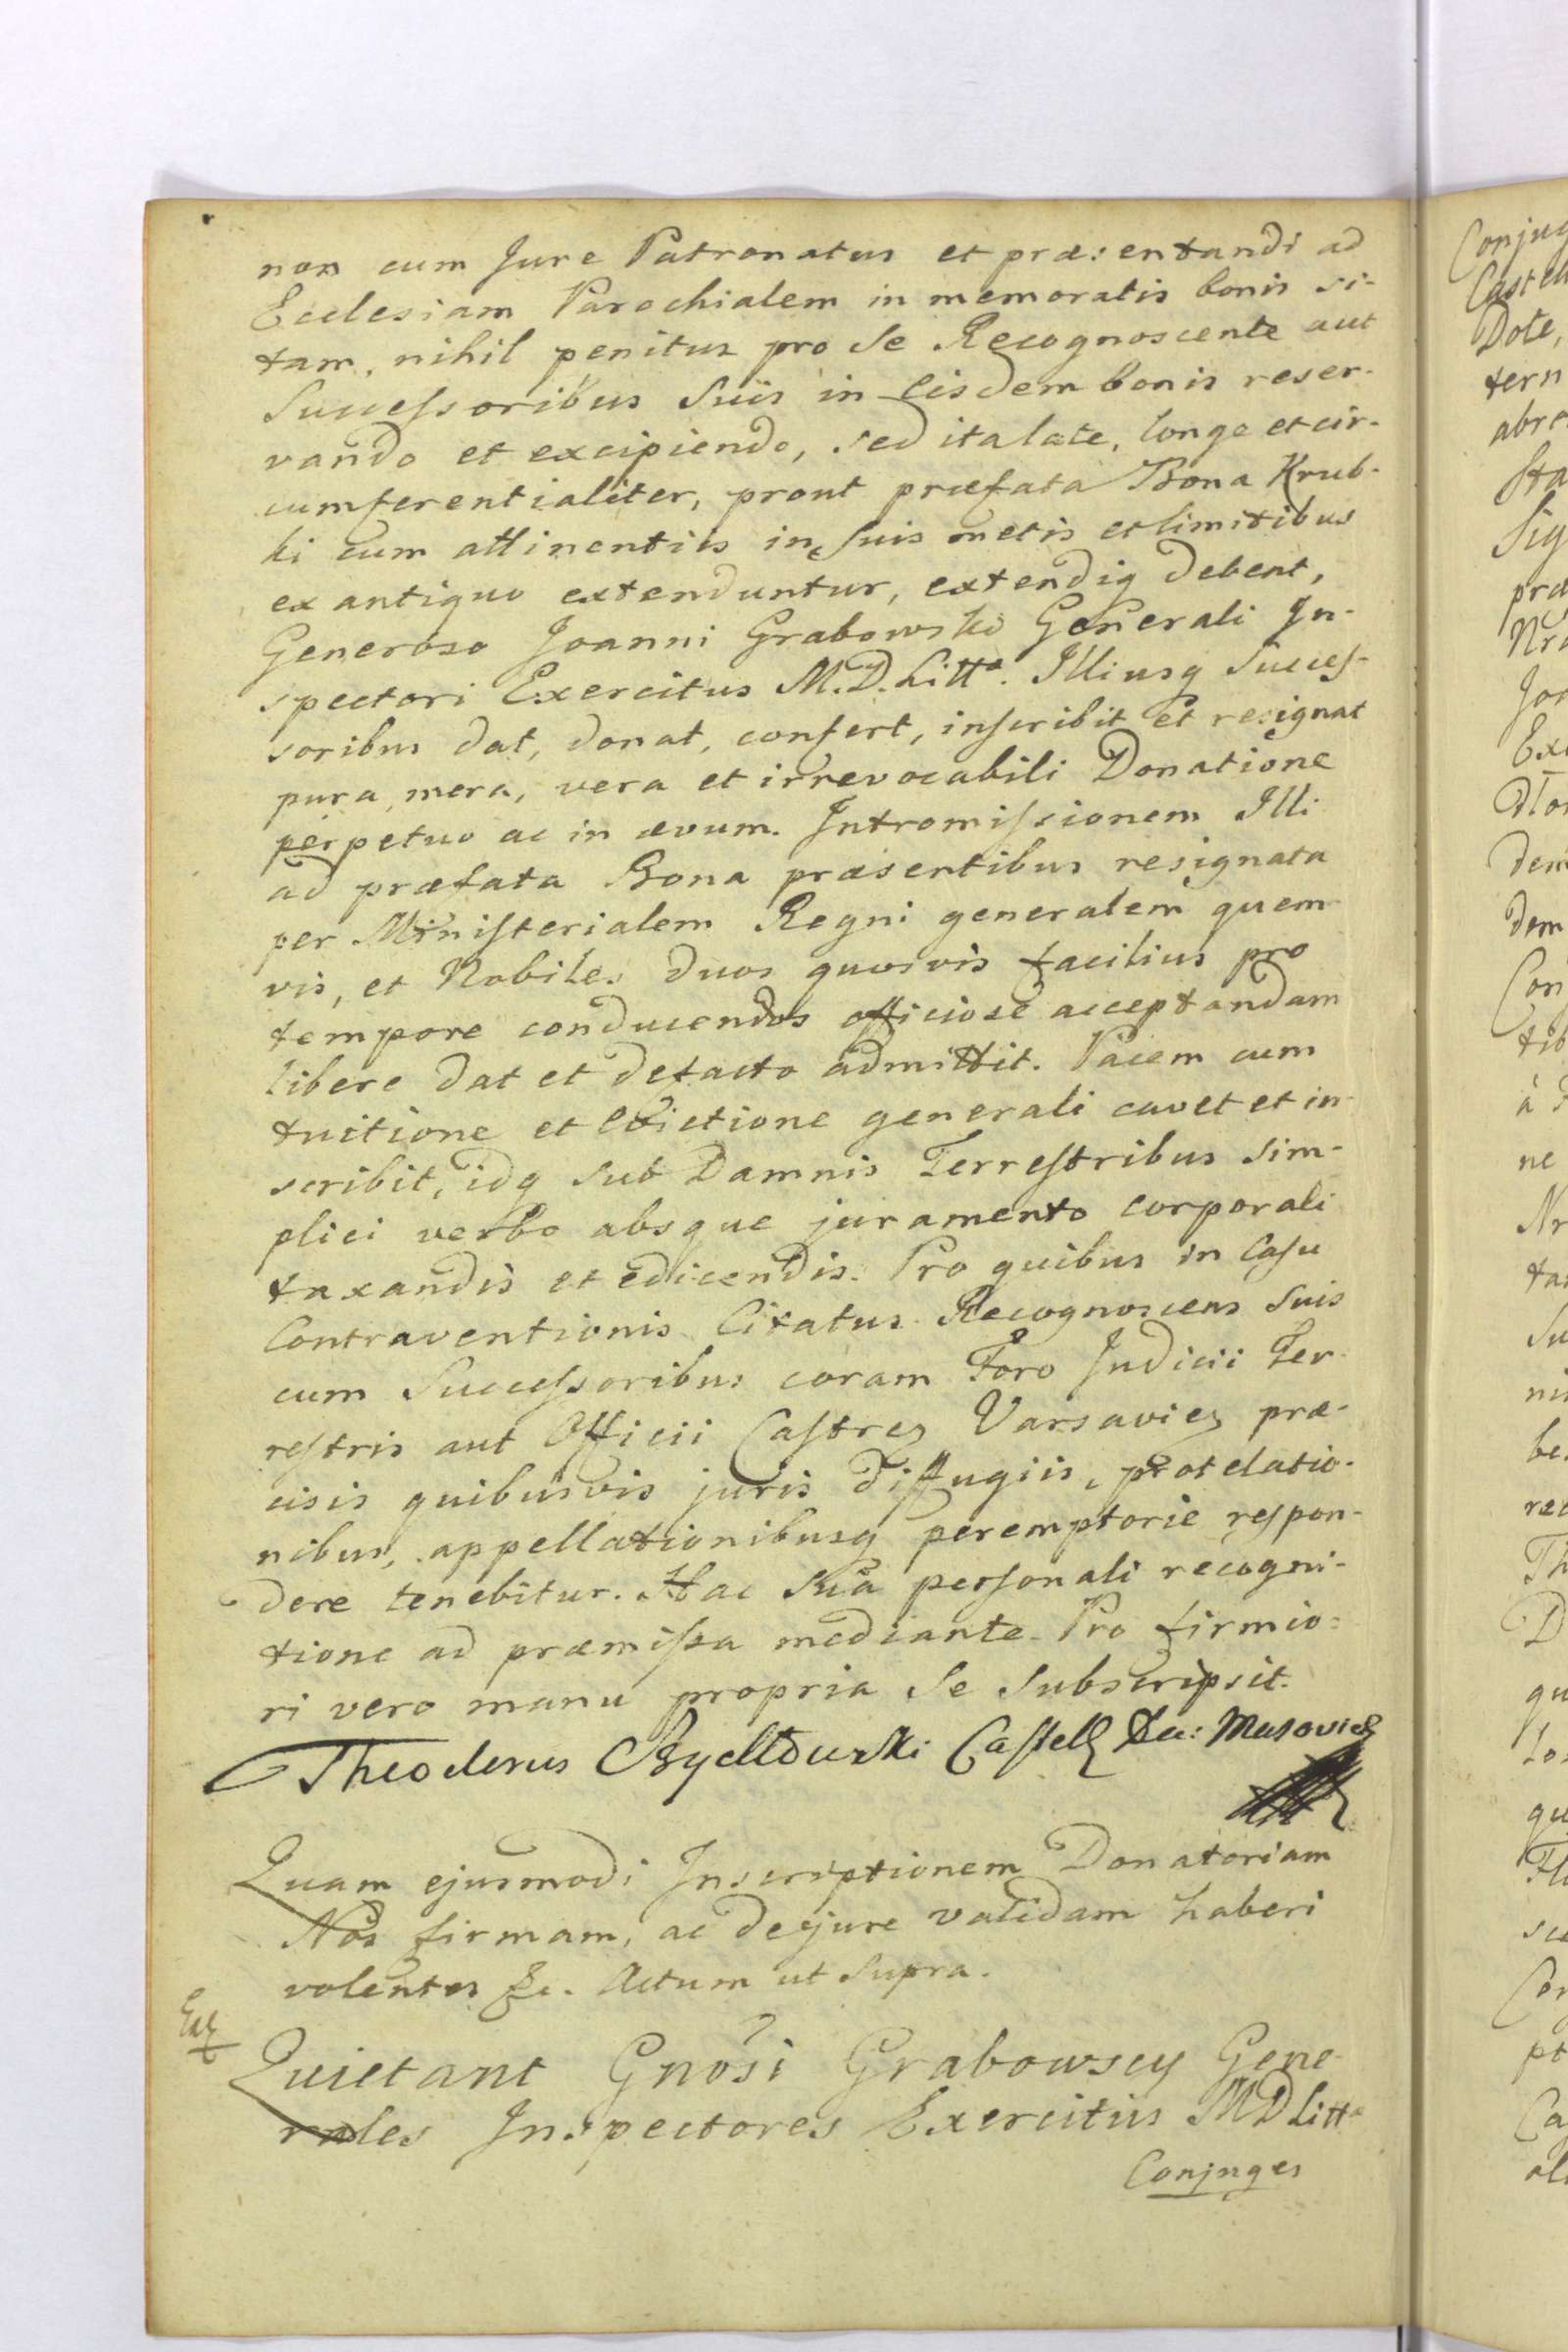 non cum Jure Patronatus et præsentandi ad
Ecclesiam Parochialem in memoratis bonis si-
tam, nihil penitus pro Se Recognoscente aut
Successoribus Suis in Eisdem bonis reser-
vando et excipiendo, sed ita late, longe et cir-
cumferentialiter, prout præfata Bona Krub-
ki cum attinentiis in Suis metis et limitibus
ex antiquo extenduntur, extendiq debent,
Generoso Joanni Grabowski Generali In-
spectori Exercitus M.D.Litta. Illiusq Succes-
soribus dat, donat, confert, inscribit et resignat
pura, mera, vera et irrevocabili Donatione
perpetuo ac in ævum. Intromissionem Illi
ad præfata Bona præsentibus resignata
per Ministerialem Regni generalem quem-
vis, et Nobiles duos quosvis facilius pro
tempore conducendos officiose acceptandam
libere dat et defacto admittit. Pacem cum
tuitione et Evictione generali cavet et in-
scribit, idq sub Damnis Terrestribus sim-
plici verbo absque juramento corporali
taxandis et edicendis. Pro quibus in Casu
Contraventionis Citatus Recognoscens Suis
cum Successoribus coram Foro Judicii Ter-
restris aut Officii Castren Varsavien præ-
cisis quibusvis juris diffugiis, protelatio-
nibus, appellationibusq peremptorie respon-
dere tenebitur. Hac Sua personali recogni-
tione ad præmissa mediante. Pro firmio-
ri vero manu propria Se Subscripsit.
Theodorus Castell Masovie
Quam ejusmodi Inscriptionem Donatoriam
Nos firmam, ac de jure validam haberi
volentes &c. Actum ut Supra.
Quietant Gnosi Grabowscy Gene-
rales Inspectores Exercitus MDLitta
Conjuges
Conjug
Dote,